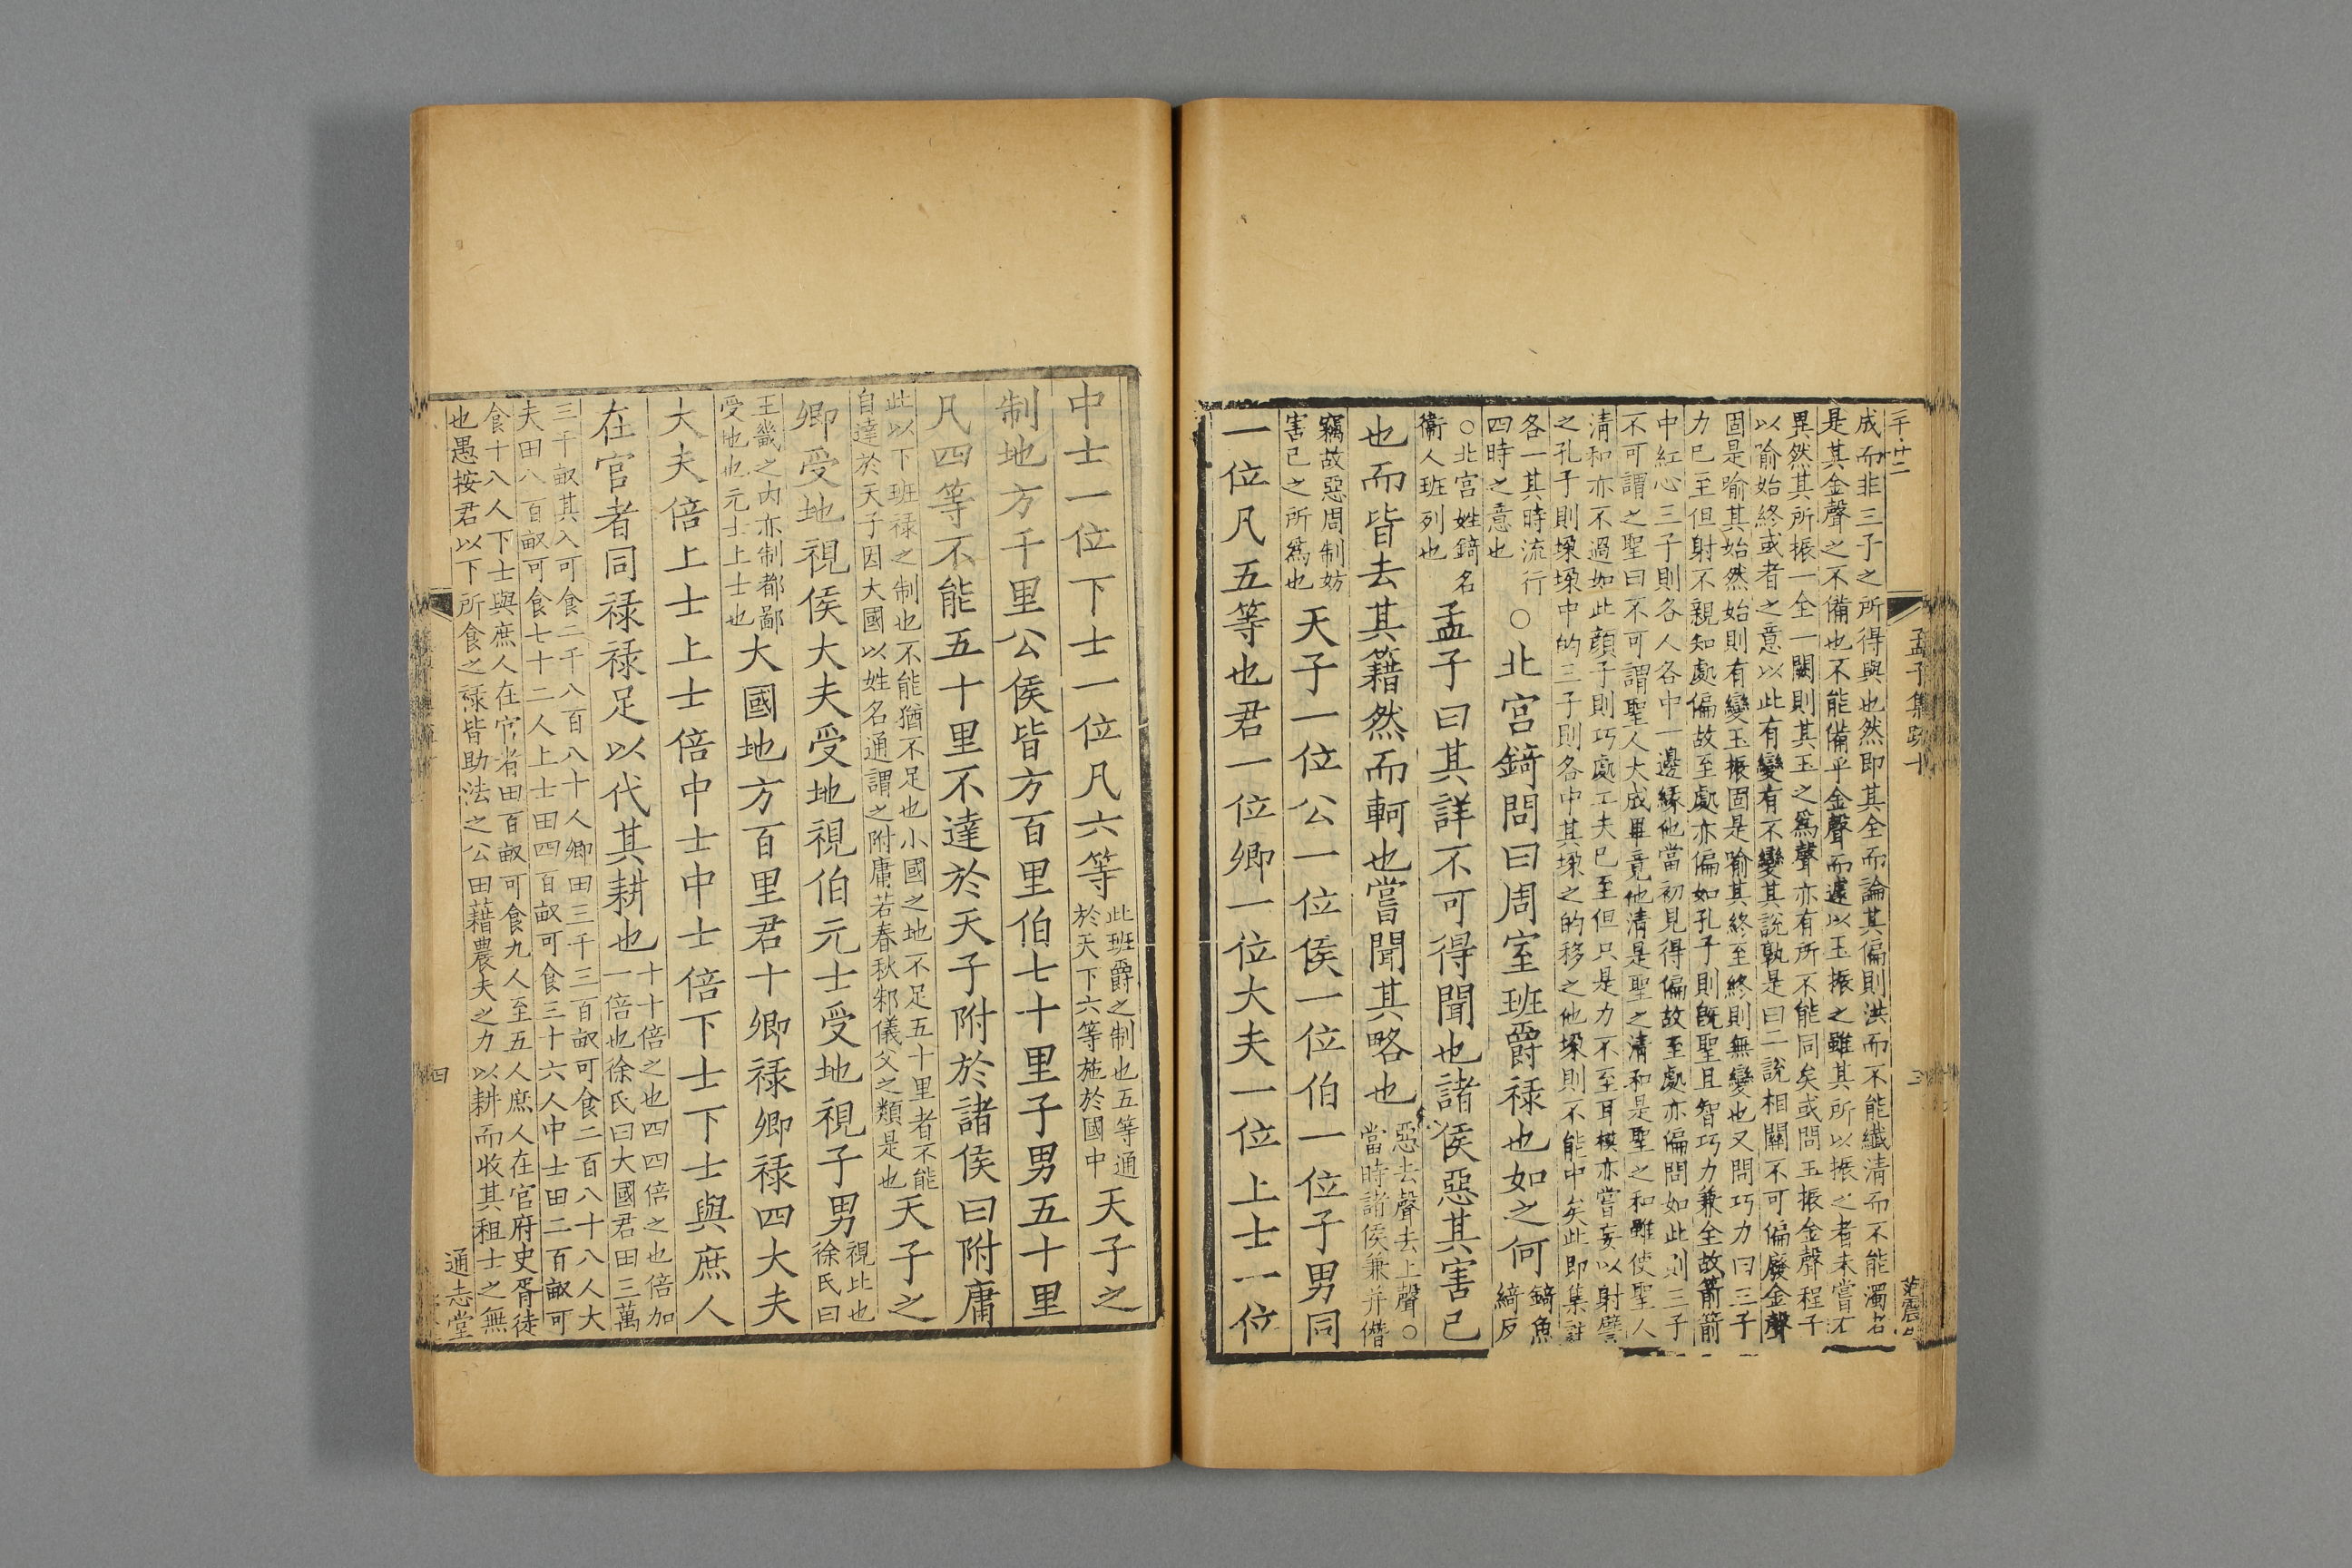 成而非三子之所得與也然即其全而論其偏則洪而不能纖清而不能濁名
是其金聲之不備也不能備乎金聲而遽以玉振之雖其所以振之者未嘗不
異然其所振一全一闕則其玉之爲聲亦有所不能同矣或問玉振金聲程子
以喻始終或者之意以此有變有不變其說孰是曰二說相關不可偏廢金聲
固是喻其始然始則有變玉振固是喻其終至終則無變也又問巧力曰三子
力已至但射不親知處偏故至處亦偏如孔子則旣聖且智巧力兼全故箭箭
中紅心三子則各人各中一邊緣他當初見得偏故至處亦偏問如此則三子
不可謂之聖曰不可謂聖人大成畢竟他清是聖之清和是聖之和雖使聖人
清和亦不過如此顔子則巧處工夫已至但只是力不至耳模亦嘗妄以射譬
之孔子則垛垛中的三子則各中其垛之的移之他垛則不能中矣此即集註
各一其時流行
四時之意也
○北宫錡問曰周室班爵禄也如之何
錡魚
綺反
○北宮姓錡名
衞人班列也
孟子曰其詳不可得聞也諸侯惡其害已
也而皆去其籍然而軻也嘗聞其略也
惡去聲去上聲○
當時諸侯兼并僭
竊故惡周制妨
害已之所爲也
天子一位公一位侯一位伯一位子男同
一位凡五等也君一位卿一位大夫一位上士一位
孟子集疏十
三
中士一位下士一位凡六等
此班爵之制也五等通
於天下六等施於國中
天子之
制地方千里公侯皆方百里伯七十里子男五十里
凡四等不能五十里不達於天子附於諸侯曰附庸
此以下班禄之制也不能猶不足也小國之地不足五十里者不能
自達於天子因大國以姓名通謂之附庸若春秋邾儀父之類是也
天子之
卿受地視侯大夫受地視伯元士受地視子男
視比也
徐氏曰
王畿之内亦制都鄙
受地也元士上士也
大國地方百里君十卿禄卿禄四大夫
大夫倍上士上士倍中士中士倍下士下士與庶人
在官者同禄禄足以代其耕也
十十倍之也四四倍之也倍加
一倍也徐氏曰大國君田三萬
三千畝其入可食二千八百八十人卿田三千三百畝可食二百八十八人大
夫田八百畝可食七十二人上士田四百畝可食三十六人中士田二百畝可
食十八人下士與庶人在官者田百畝可食九人至五人庶人在官府史胥徒
也愚按君以下所食之禄皆助法之公田藉農夫之力以耕而收其租士之無
四
通志堂